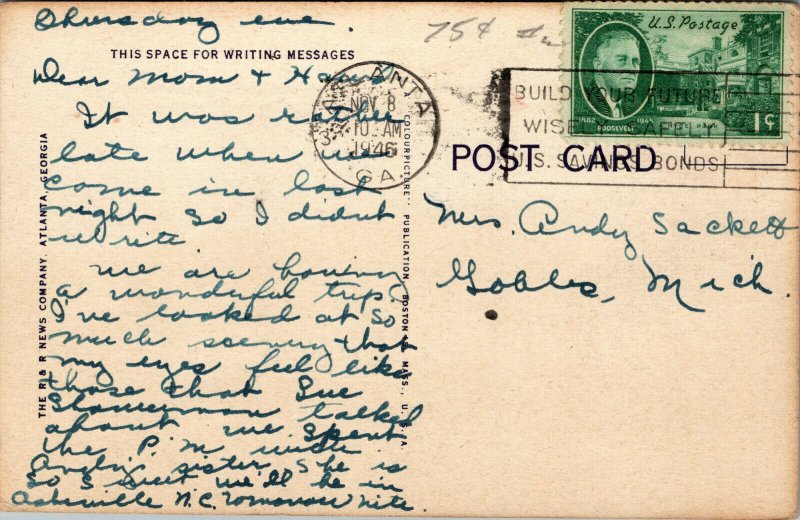 Thursday eve.
THIS SPACE FOR WRITING MESSAGES
Dear Mom + Hans
It was rather
late when we
come in last
night so I didnt
write
We are having
a wonderful trip.
I've looked at so
much scenery that
my eyes feel like
those that Sue
talked
about. We spent
the P.M. with
Andy's sister. She is
so sweet We'll be in
Asheville N.C. Tomorrow nite.
THE R & R NEWS COMPANY, ATLANTA, GEORGIA
"COLOURPICTURE" PUBLICATION, BOSTON, MASS., U.S.A.
75¢
ATLANTA
NOV 8
10 AM
1946
GA.
BUILD YOUR FUTURE
WISELY SAFELY
U.S. SAVINGS BONDS
U.S. Postage
1882 1945
ROOSEVELT
1¢
POST CARD
Mrs. Andy Sackett
Gobles, Mich.